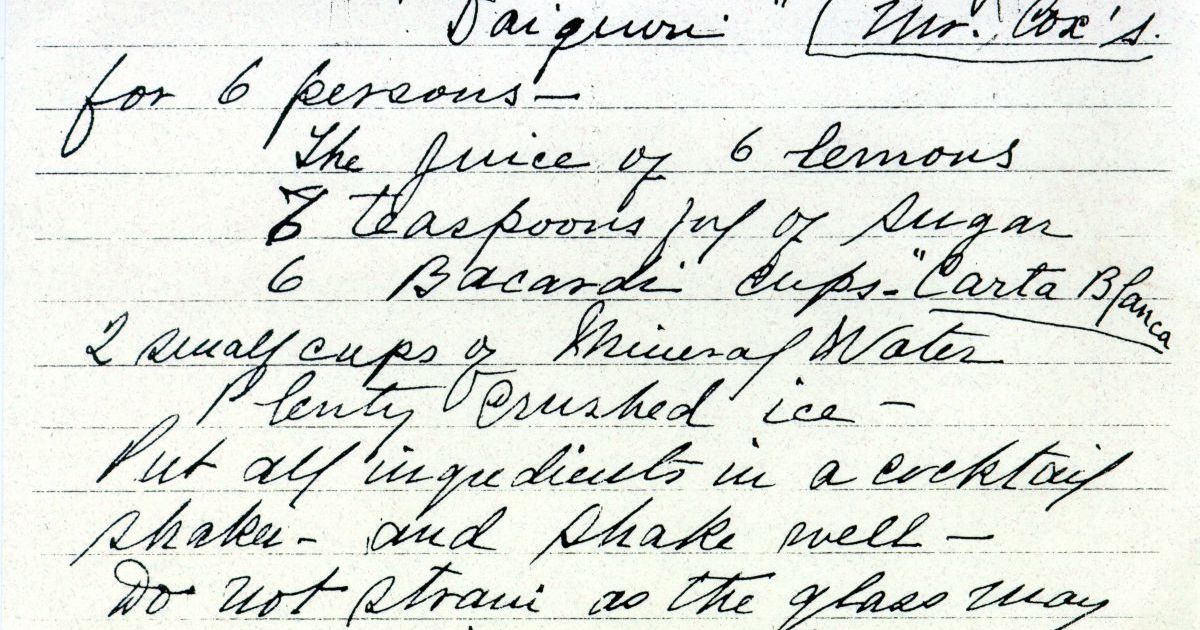 "Daiguiri" Mr. Cox's.
for 6 persons—
The juice of 6 lemons
6 teaspoons ful of sugar
6 Bacardi cups - "Carta Blanca
2 small cups of Mineral Water
Plenty crushed ice —
Put all ingredients in a cocktail
shaker - and shake well —
Do not strain as the glass may